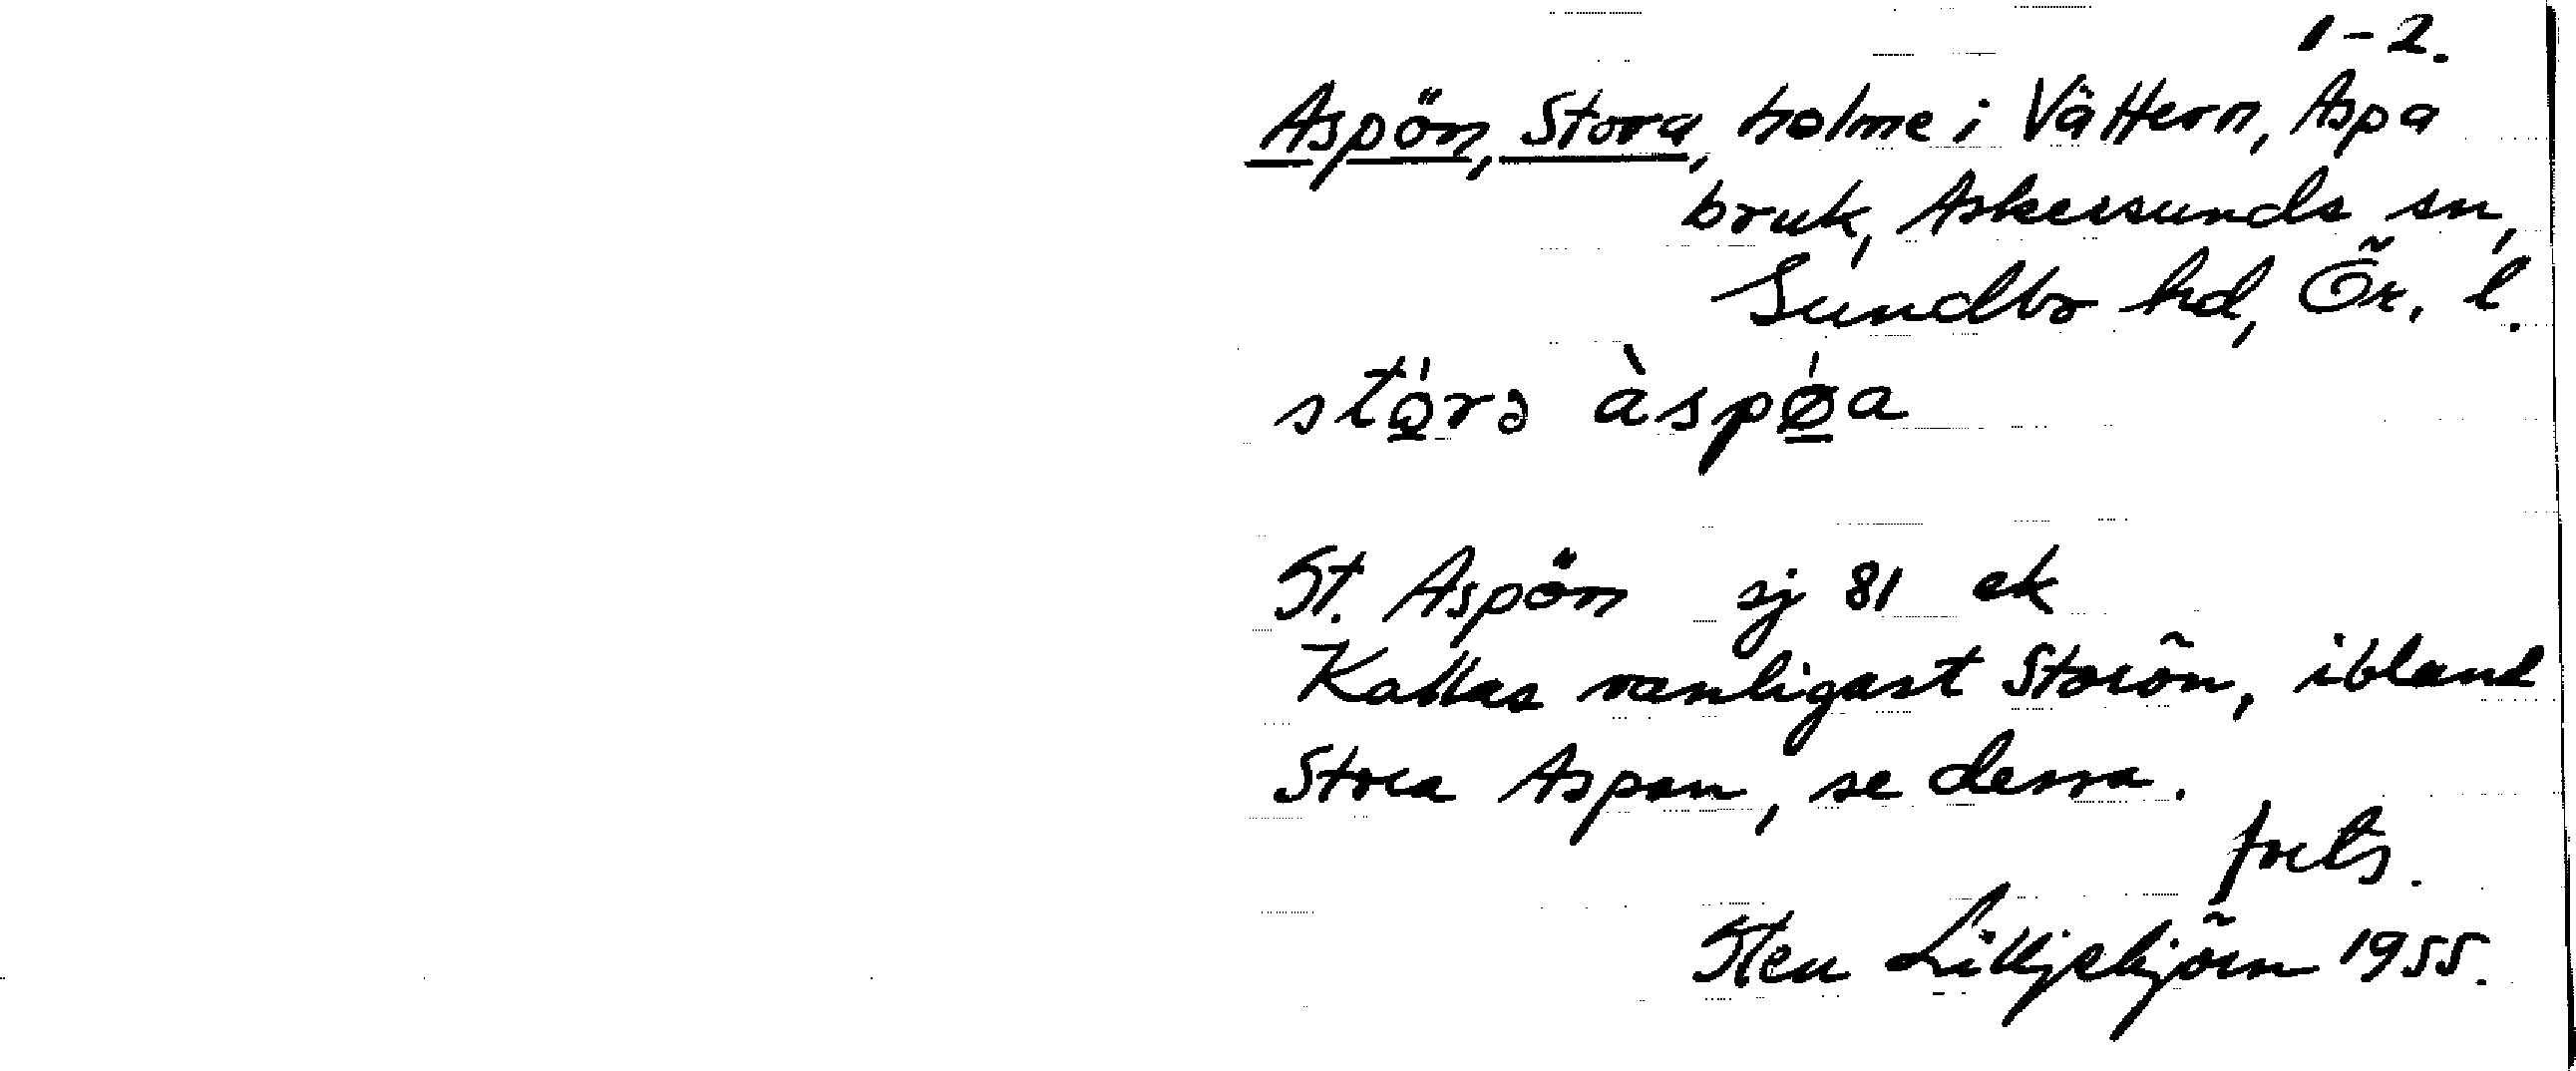 1-2.
Aspön, Stora, holme i Vättern, Aspa
bruk, Askersunds sn,
Sundbo hd, Ör. l.
stǫ́rə àspǿ̱a
St. Aspön sj 81 ek
Kallas vanligast Storön, ibland
Stora Aspan, se dessa.
forts.
Sten Lilljebjörn 1955.